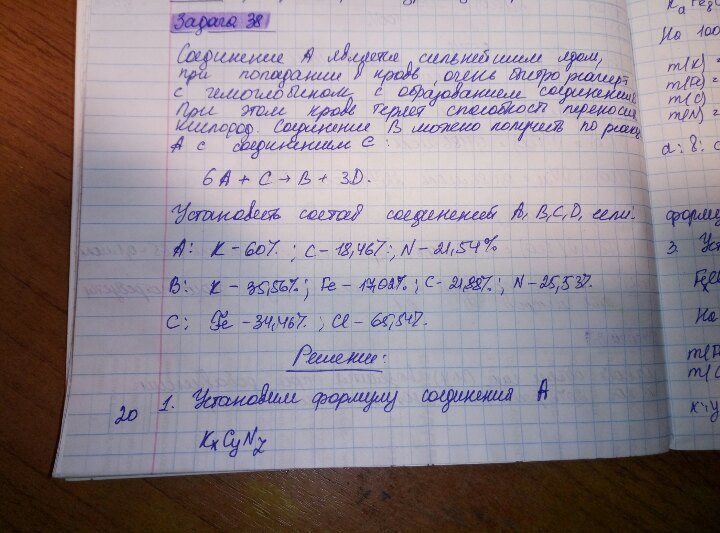 Задача 38
Соединение А является сильнейшим ядом,
при попадании в кровь очень быстро реагирует
с гемоглобином с образованием соединения
При этом кровь теряет способность переносить
кислород. Соединение В можно получить по реакц
А с соединением С:
6А + С → В + 3D.
Установить состав соединений А, В, С, D, если:
А: К - 60%; С - 18,46%; N - 21,54%
В: К - 35,56%; Fe - 17,02%; С - 21,88%; N - 25,53%.
С: Fe - 34,46%; Cl - 65,54%.
Решение:
20
1. Установим формулу соединения А
KxCyNz
На 100
m(K) =
m(Fe) =
m(C) =
m(N) =
а : в : с
формул
3. Уст
На
m(Fe
m(C